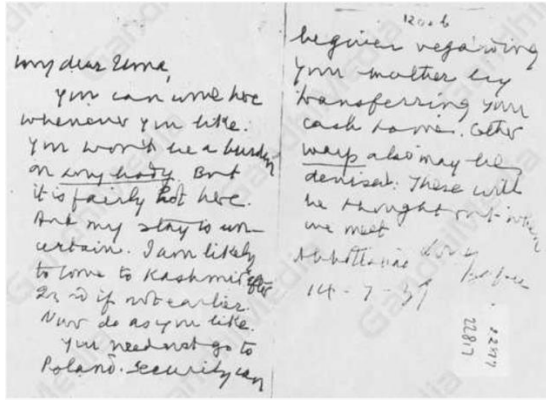 my dear Uma,
You can come here
whenever you like.
You won't be a burden
on any body. But
it is fairly hot here.
And my stay is un-
certain. I am likely
to come to Kashmir after
22nd if not earlier.
Now do as you like.
You need not go to
Poland. Security can
be given regarding
your mother by
transferring your
cash to me. Other
ways also may be
devised. These will
be thought out when
we meet
Abbottabad Love
14-7-39 Bapu
22817
GandhiMedia